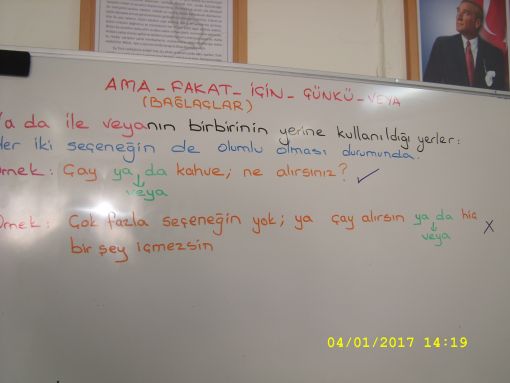 AMA - FAKAT - İÇİN - ÇÜNKÜ - VEYA
(BAĞLAÇLAR)
Ya da ile veyanın birbirinin yerine kullanıldığı yerler:
Her iki seçeneğin de olumlu olması durumunda.
Örnek: Çay ya da kahve; ne alırsınız?
veya
Örnek: Çok fazla seçeneğin yok; ya çay alırsın ya da hiç
veya
bir şey içmezsin
04/01/2017 14:19